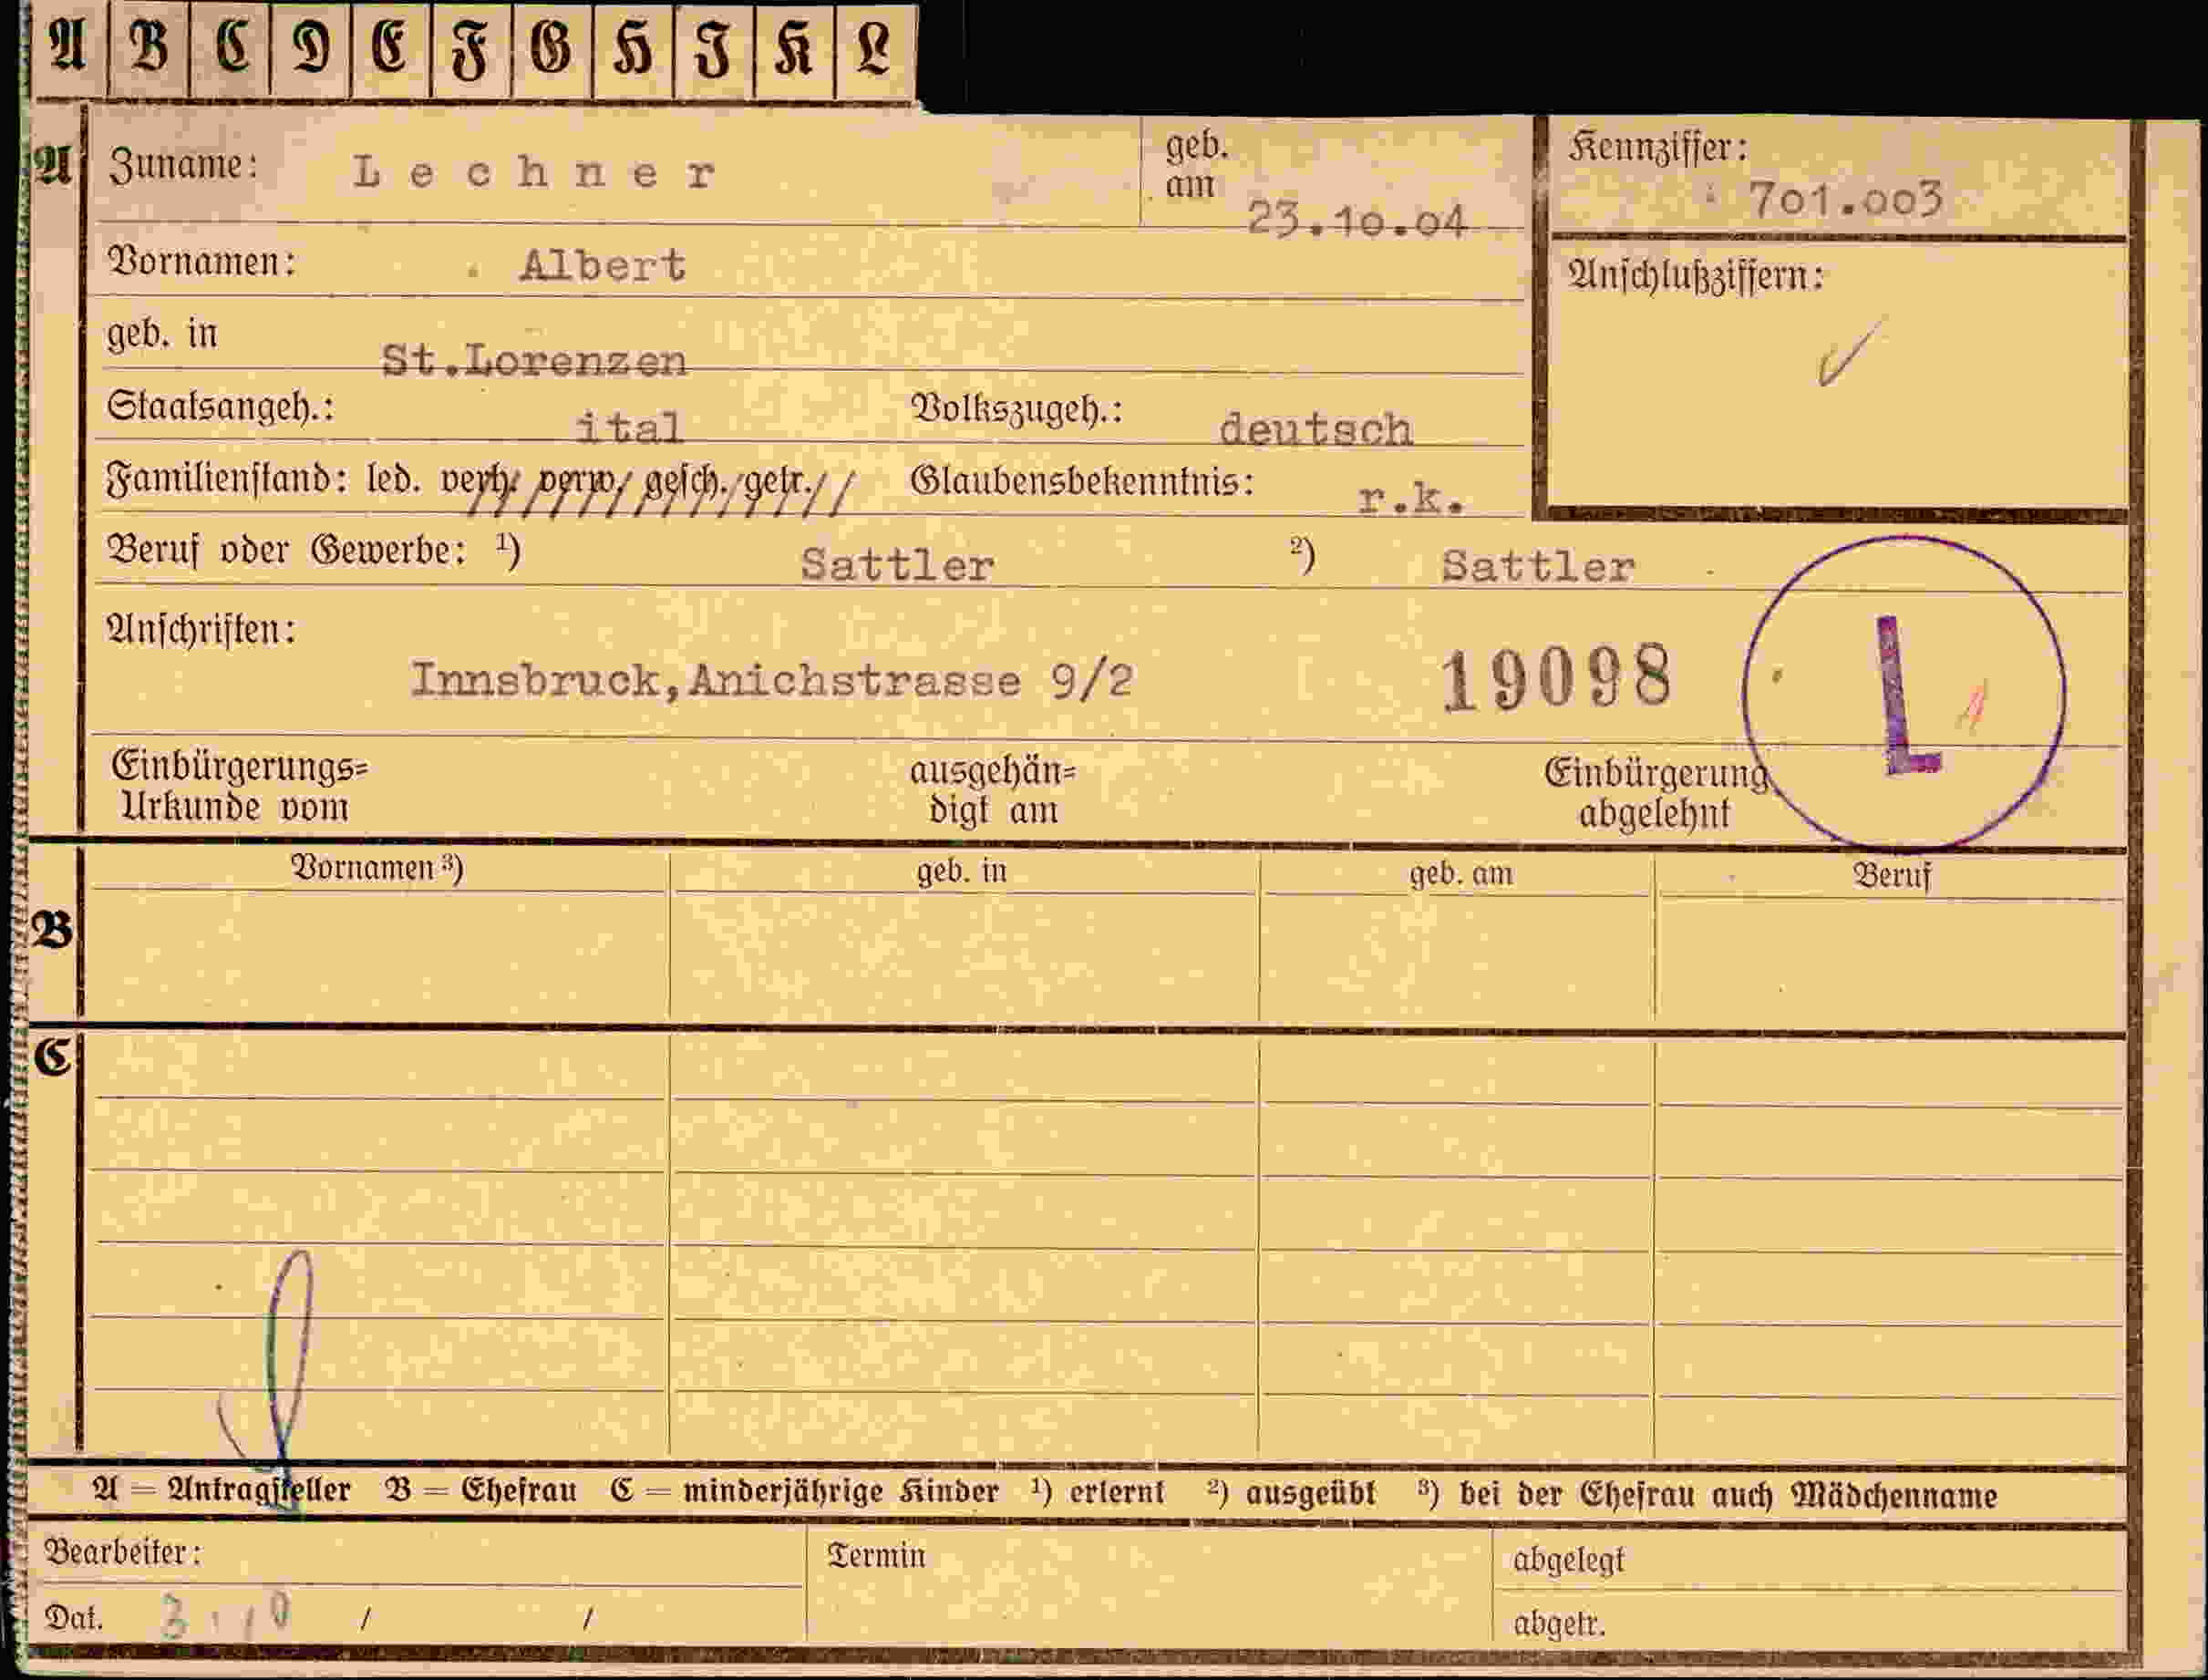 A B C D E F G H I K L
A Zuname: Lechner geb. am 23.10.04 Kennziffer: 701.003
Vornamen: Albert Anschlußziffern:
geb. in St.Lorenzen
Staatsangeh.: ital Volkszugeh.: deutsch
Familienstand: led. verh. verw. gesch. getr. Glaubensbekenntnis: r.k.
Beruf oder Gewerbe: ¹) Sattler ²) Sattler
Anschriften:
Innsbruck,Anichstrasse 9/2 19098 L
Einbürgerungs= ausgehän= Einbürgerung
Urkunde vom digt am abgelehnt
Vornamen ³) geb. in geb. am Beruf
B
C
A = Antragsteller B = Ehefrau C = minderjährige Kinder ¹) erlernt ²) ausgeübt ³) bei der Ehefrau auch Mädchenname
Bearbeiter: Termin abgelegt
Dat. 3.10 / / abgetr.